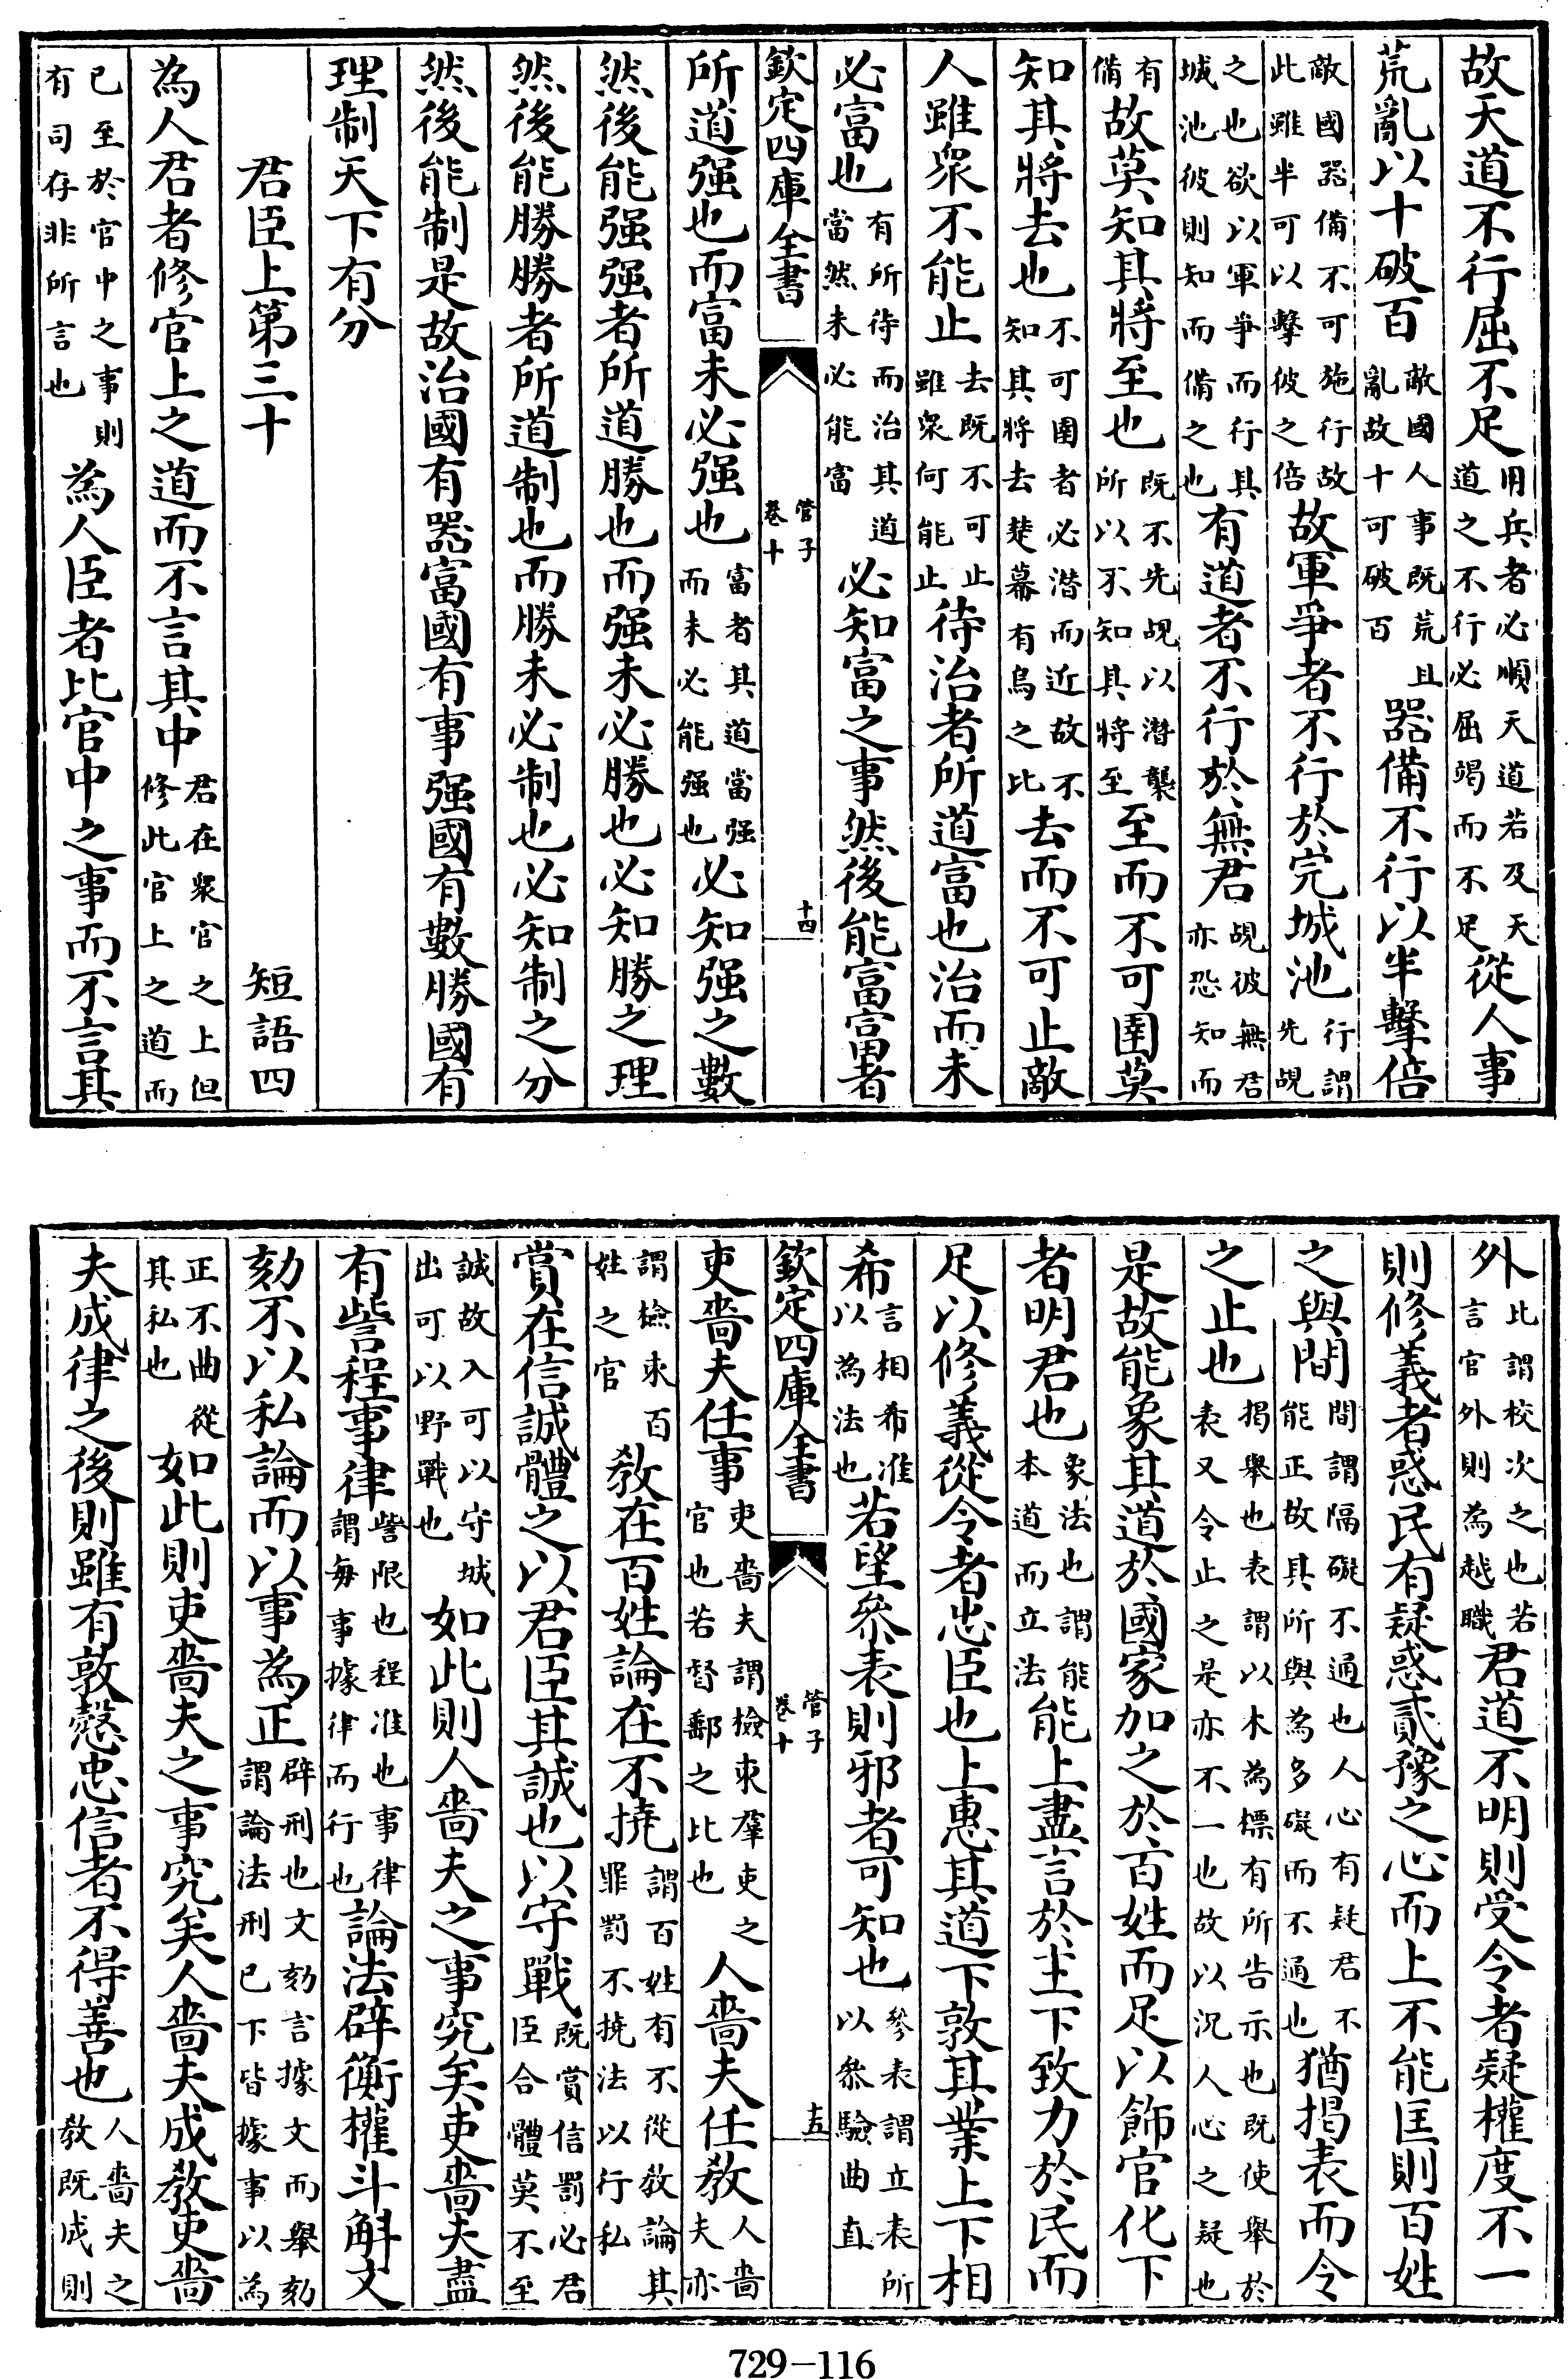 故天道不行屈不足用兵者必順天道若及天道之不行必屈竭而不足從人事
荒亂以十破百敵國人事既荒且亂故十可破百器備不行以半擊倍
敵國器備不可施行故此雖半可以擊彼之倍故軍爭者不行於完城池行謂先覘
之也欲以軍爭而行具城池彼則知而備之也有道者不行於無君覘彼無君亦恐知而
有備故莫知其將至也既不先覘以潜襲所以不知具將至至而不可圉莫
知其將去也不可圉者必潜而近故不知其將去楚幕有烏之比去而不可止敵
人雖衆不能止去既不可止雖衆何能止待治者所道富也治而未
必富也有所待而治其道當然未必能富必知富之事然後能富富者
欽定四庫全書
管子
卷十
十四
所道强也而富未必强也富者其道當强而未必能强也必知强之數
然後能强强者所道勝也而强未必勝也必知勝之理
然後能勝勝者所道制也而勝未必制也必知制之分
然後能制是故治國有器富國有事强國有數勝國有
理制天下有分
君臣上第三十　短語四
為人君者修官上之道而不言其中君在衆官之上但修此官上之道而
已至於官中之事則有司存非所言也為人臣者比官中之事而不言其
外比謂校次之也若言官外則為越職君道不明則受令者疑權度不一
則修義者惑民有疑惑貳豫之心而上不能匡則百姓
之與間間謂隔礙不通也人心有疑君不能正故其所與為多礙而不通也猶揭表而令
之止也揭舉也表謂以木為標有所告示也既使舉於表又令止之是亦不一也故以況人心之疑也
是故能象其道於國家加之於百姓而足以飾官化下
者明君也象法也謂能本道而立法能上盡言於主下致力於民而
足以修義從令者忠臣也上惠其道下敦其業上下相
希言相希准以為法也若望叅表則邪者可知也參表謂立表所以叅驗曲直
欽定四庫全書
管子
卷十
十五
吏嗇夫任事吏嗇夫謂檢束羣吏之官也若督郵之比也人嗇夫任教人嗇夫亦
謂檢束百姓之官教在百姓論在不撓謂百姓有不從教論其罪罰不撓法以行私
賞在信誠體之以君臣其誠也以守戰既賞信罰必君臣合體莫不至
誠故入可以守城出可以野戰也如此則人嗇夫之事究矣吏嗇夫盡
有訾程事律訾限也程准也事律謂每事據律而行也論法辟衡權斗斛文
劾不以私論而以事為正辟刑也文劾言據文而舉劾謂論法刑已下皆據事以為
正不曲從其私也如此則吏嗇夫之事究矣人嗇夫成教吏嗇
夫成律之後則雖有敦慤忠信者不得善也人嗇夫之教既成則
729-116